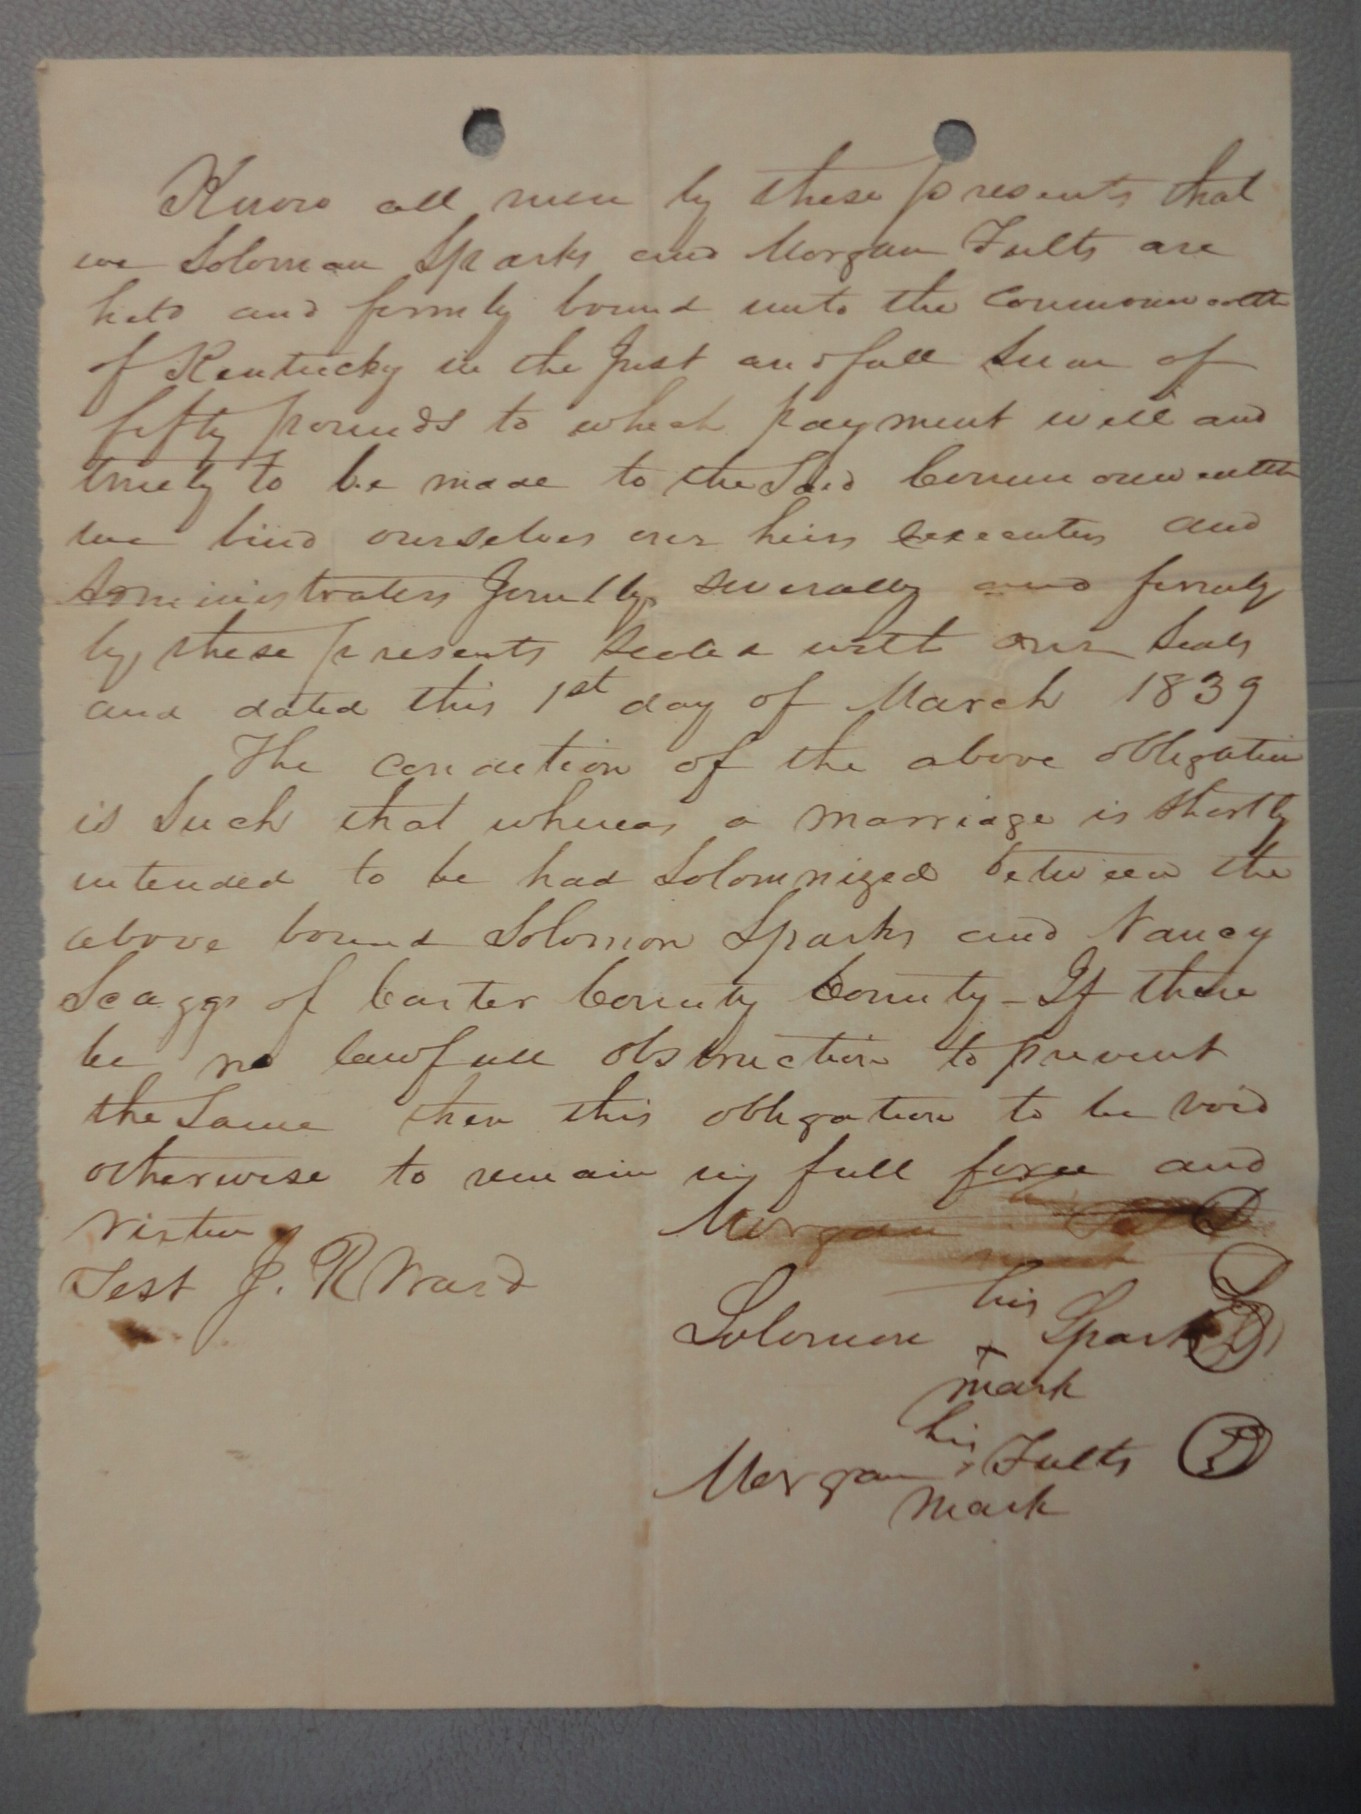 Know all men by these presents that
we Soloman Sparks and Morgan Fults are
held and firmly bound unto the Commonwealth
of Kentucky in the Just and full Sum of
fifty pounds to which payment well and
truely to be made to the Said Commonwealth
we bind ourselves our heirs executors and
Administrators Jointly severally and firmly
by these presents sealed with our seals
and dated this 1st day of March 1839
The condition of the above obligation
is Such that whereas a marriage is shortly
intended to be had Solomnized between the
above bound Solomon Sparks and Nancy
Scaggs of Carter County County - If there
be no lawfull obstruction to prevent
the Same then this obligation to be void
otherwise to remain in full force and
virtue
Morgan
Test J. R Ward
his
Solomon + Sparks
mark
his
Morgan x Fults
mark